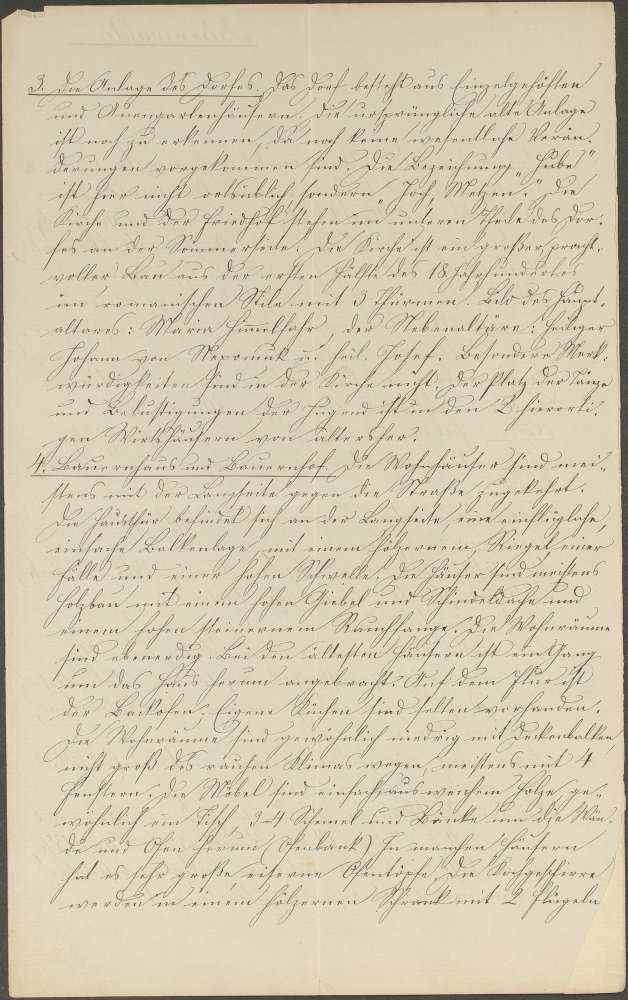 3. Die Anlage des Dorfes. Das Dorf besteht aus Einzelgehöften
und Auengartenhäusern, die ursprüngliche alte Anlage
ist noch zu erkennen, da noch keine wesentliche Verän-
derungen vorgekommen sind. Die Bezeichnung „Hube"
ist hier nicht ortsüblich sondern „Joch, Metzen." Die
Kirche und der Friedhof stehen im unteren Theile des Dor-
fes an der Sommerseite. Die Kirche ist ein großer, pracht-
voller Bau aus der ersten Hälfte des 18 Jahrhundertes
im romanischen Stile mit 3 Thürmen. Bild des Haupt-
altares: Maria Himmelfahr, der Nebenaltäre: heiliger
Johann von Nepomuk u. heil. Josef. Besondere Merk-
würdigkeiten sind in der Kirche nicht. Der Platz der Tänze
und Belustigungen der Jugend ist in den 2 hierorti-
gen Wirtshäusern von altersher.
4. Bauernhaus und Bauernhof. Die Wohnhäuser sind mei-
stens mit der Langseite gegen die Straße zugekehrt.
Die Hausthür befindet sich an der Langseite, eine einflüglche,
einfache Balkenlage mit einem hölzernem Riegel einer
Falle und einer hohen Schwelle. Die Häuser sind meistens
Holzbau mit einem hohen Giebel und Schindeldache und
einem hohen steinernem Rauchfange. Die Wohnräume
sind ebenerdig. Bei den ältesten Häusern ist ein Gang
um das Haus herum angebracht. Auf dem Flur ist
der Backofen; Eigene Küchen sind selten vorhanden.
Die Wohnräume sind gewöhnlich niedrig mit Deckenbalken,
nicht groß des rauhen Klimas wegen, meistens mit 4
Fenstern. Die Möbel sind einfach aus weichem Holze, ge-
wöhnlich ein Tisch, 3-4 Schemel und Bänke um die Wän-
de und Ofen herum (Ofenbank) In manchen Häusern
hat es sehr große, eiserne Ofentöpfe. Die Kochgeschirre
werden in einem hölzernen Schrank mit 2 Flügeln